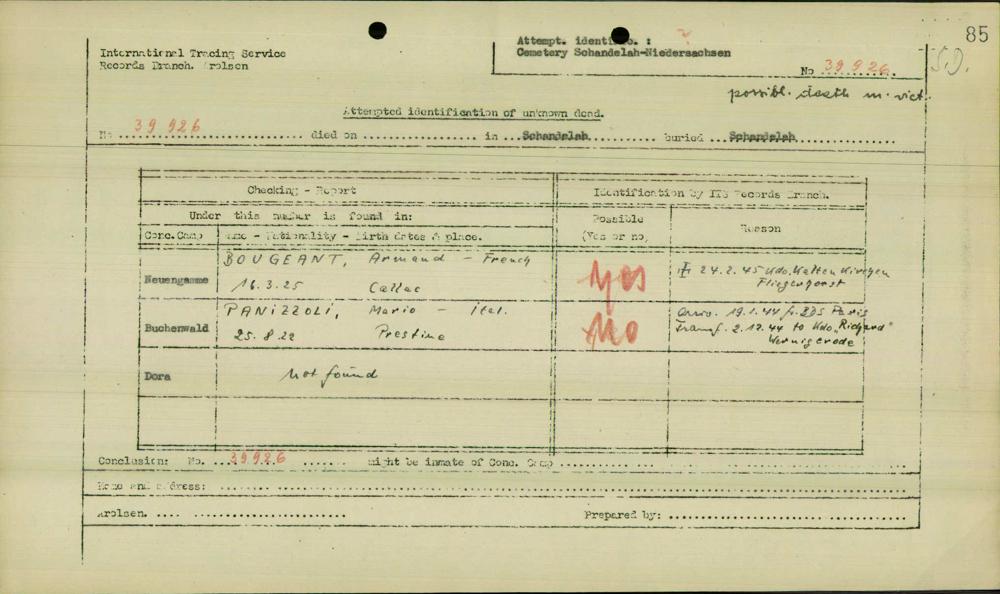 85
International Tracing Service
Records Branch. Arolsen
Attempt. identific. : ?
Cemetery Schandelah-Niedersachsen
No 39926
S.D.
possibl. death m. vict.
Attempted identification of unknown dead.
No ...39926... died on ... in ...Schandelah... buried ...Schandelah...
Checking - Report
Identification by ITS Records Branch.
Under this number is found in:
Possible
(Yes or no)
Reason
Conc.Camp
Name - Nationality - Birth dates & place.
Neuengamme
BOUGEANT, Armand - French
16.3.25 Callac
Yes
24.2.45 Kdo. Kaltenkirchen
Fliegerhorst
Buchenwald
PANIZZOLI, Mario - Ital.
25.8.22 Prestine
No
19.1.44 Paris
Transf. 2.12.44 to Kdo. "Richard"
Wernigerode
Dora
Not found
Conclusion: No. ...39926... might be inmate of Conc. Camp ...
Name and address: ...
Arolsen. ...
Prepared by: ...